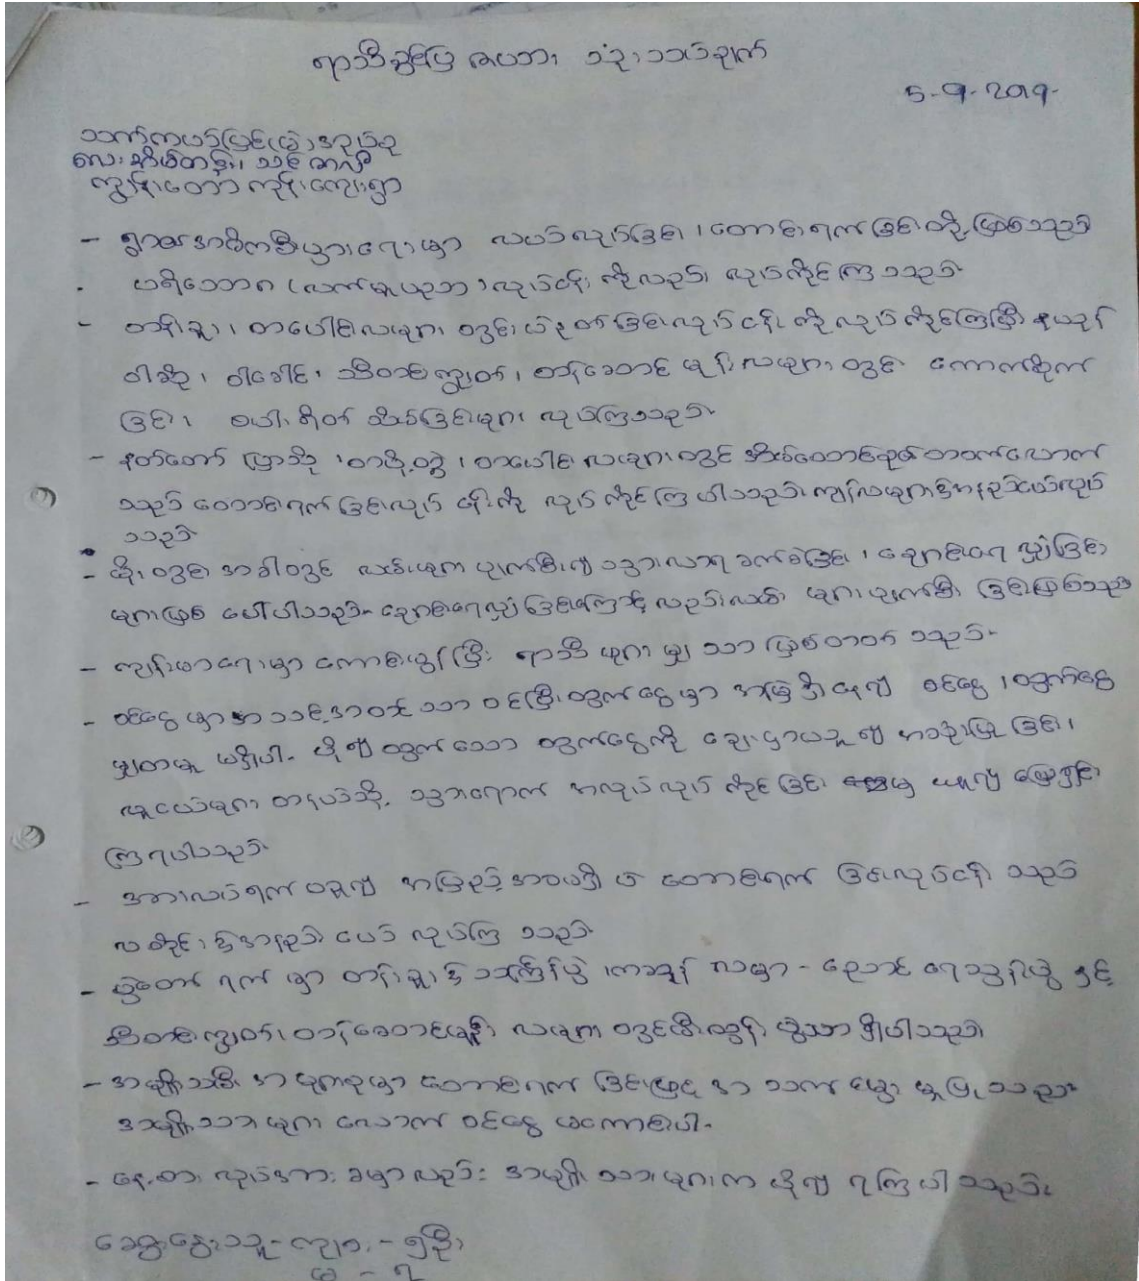 ရာသီခွင်ပြ ဇယား သုံးသပ်ချက်
၅-၉-၂၀၁၉-
သက်ကယ်ပြင်(မြဲ)အုပ်စု
လေးအိမ်တန်း၊ သင်
ကျွန်းတော ကုန်းကျေးရွာ
- ရွာ၏အဓိကစီးပွားရေးမှာ လယ်လုပ်ခြင်း၊ တောင်းရက်ခြင်းတို့ဖြစ်သည်
. ပရိဘောဂ (လက်မှုပညာ) လုပ်ငန်းကိုလည်း လုပ်ကိုင်ကြသည်
- တန်ခူး၊ တပေါင်းလများ တွင် လုပ်ငန်းကိုလုပ်ကိုင်ကြပြီး နယုန်
ဝါဆို၊ ဝါခေါင်၊ သီတင်းကျွတ်၊ တန်ဆောင်မုန်းလများတွင် ကောက်စိုက်
ခြင်း၊ စပါးရိတ်သိမ်းခြင်းများ လုပ်ကြသည်။
- နတ်တော် ပြာသို၊ တပို့တွဲ၊ တပေါင်းလများတွင် အိမ်ထောင်စု လောက်
သည် တောင်းရက်ခြင်းလုပ်ငန်းကို လုပ်ကိုင်ကြပါသည်။ ကျန်လများ၌ အနည်းငယ်လုပ်
သည်
- မိုးတွင်းအခါတွင် လမ်းများပျက်စီး၍ သွားလာရခက်ခဲခြင်း၊ ချောင်းရေလျှံခြင်း
များဖြစ်ပေါ်ပါသည်။ ချောင်းရေလျှံခြင်းကြောင့်လည်း လမ်းများပျက်စီးခြင်းဖြစ်သည်
- ကျန်းမာရေးမှာ ကောင်းမွန်ပြီး ရာသီ များမျှသာဖြစ်တတ်သည်။
- ဝင်ငွေမှာ အသင့်အတင့်သာဝင်ပြီး ထွက်ငွေမှာ အမြဲရှိနေ၍ ဝင်ငွေ၊ ထွက်ငွေ
မျှတမှု မရှိပါ။ ပို၍ထွက်သော ထွက်ငွေကို ချေးငှားယူ၍ အသုံးပြုခြင်း၊
လူငယ်များ တနယ်သို့ သွားရောက် အလုပ်လုပ်ကိုင်ခြင်း မှ ယူ၍ ဖြေရှင်း
ကြရပါသည်။
- အားလပ်ရက် ဟူ၍ အမြဲ မရှိပဲ တောင်းရက်ခြင်းလုပ်ငန်းသည်
လတိုင်း၌ အနည်းငယ် လုပ်ကြသည်။
- ပွဲတော်ရက်မှာ တန်ခူး၌ သင်္ကြန်ပွဲ၊ ကဆုန်လမှာ - ညောင်ရေသွန်းပွဲ နှင့်
သီတင်းကျွတ်၊ တန်ဆောင်မုန်း လများတွင်မီးထွန်းပွဲသာ ရှိပါသည်။
- အမျိုးသမီးအများစုမှာ တောင်းရက်ခြင်းဖြင့် အသက်မွေးမှုပြုသည်။
အမျိုးသားများလောက် ဝင်ငွေမကောင်းပါ။
- နေ့စား လုပ်အားခမှာလည်း အမျိုးသားများက ပို၍ရကြပါသည်။
ဆွေးနွေးသူ - ကျား - ၅ဦး
မ - ၃